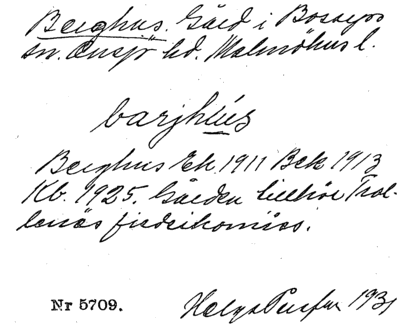 Berghus. Gård i Bosarps
sn. Onsjö hd. Malmöhus l.
barjhús
Berghus Ek 1911 Bek 1913
Kb. 1925. Gården tillhör Trol-
lenäs fideikomiss.
Nr 5709.
Helge 1931